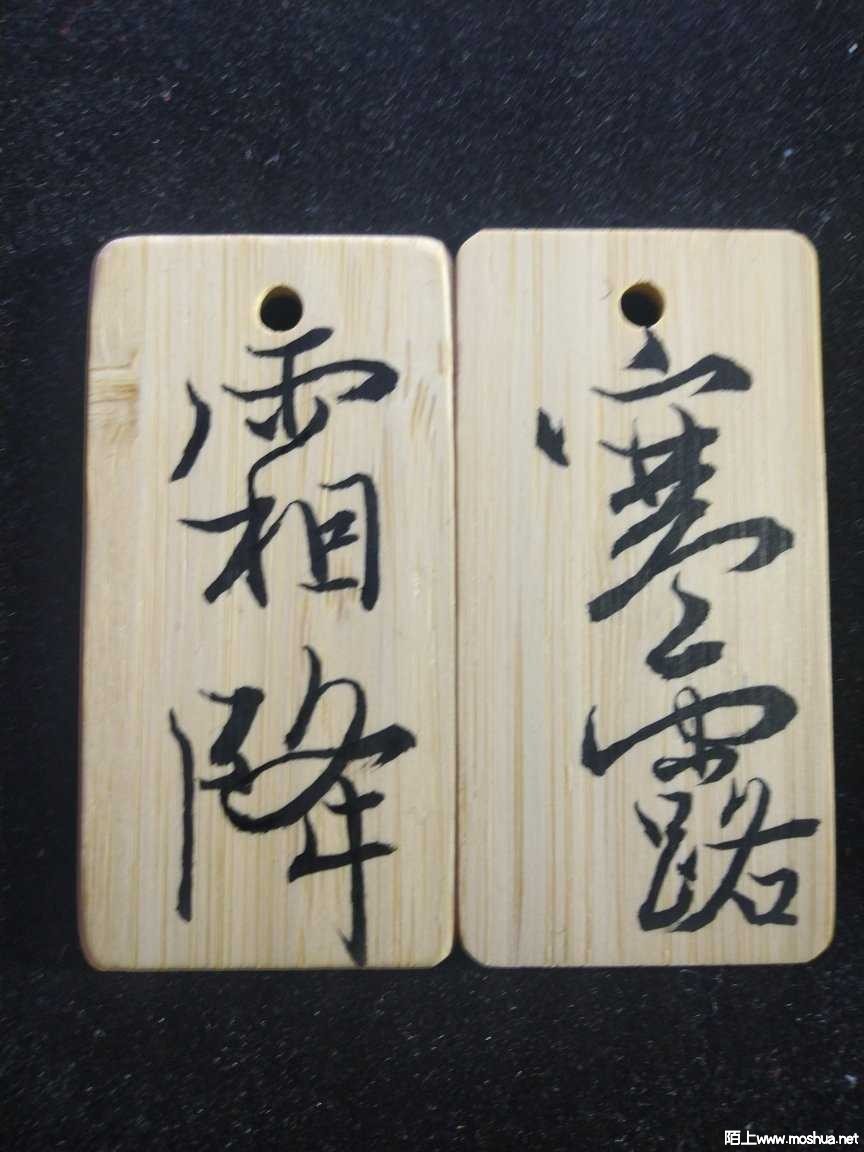 寒露
霜降
陌上www.moshua.net